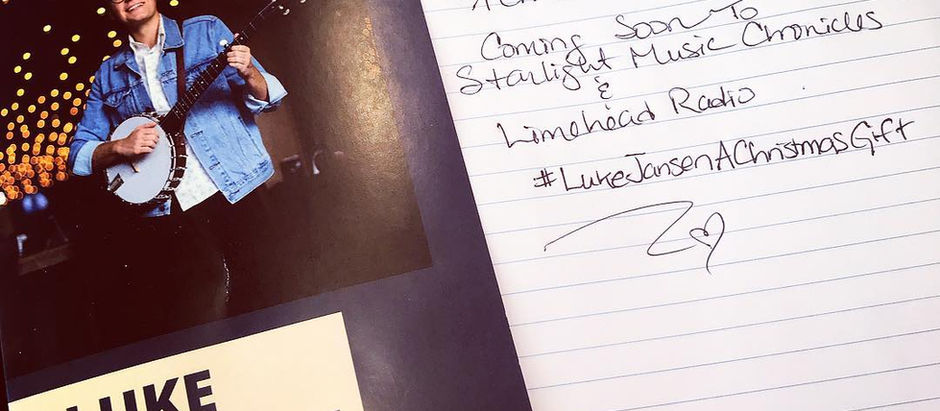 Coming Soon To
Starlight Music Chronicles
&
Limehead Radio
#LukeJansenAChristmasGift
LUKE